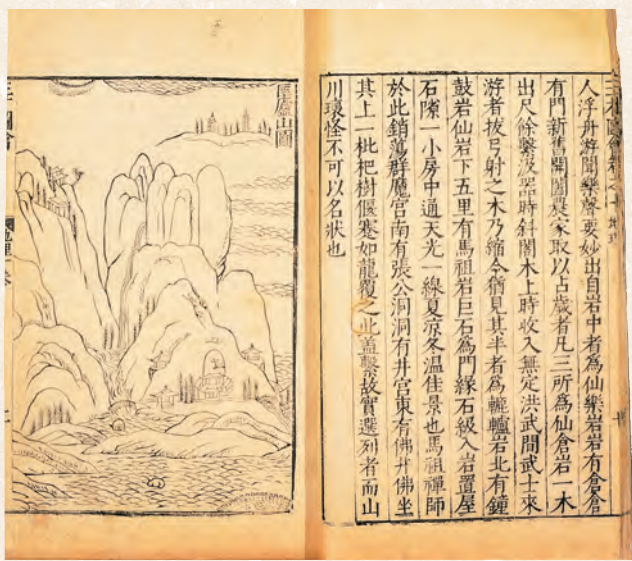 三才圖會卷之十 地理
人浮舟游聞樂聲要妙出自岩中者爲仙樂岩岩有倉倉
有門新舊開闔農家取以占歲者凡三所爲仙倉岩一木
出尺餘繫汲器時斜閣木上時收入無定洪武間武士來
游者拔弓射之木乃縮今猶見其半者爲轆轤岩北有鐘
鼓岩仙岩下五里有馬祖岩巨石爲門緣石級入岩置屋
石隙一小房中通天光一線夏凉冬温佳景也馬祖禪師
於此銷蕩群魔宫南有張公洞洞有井宫東有佛井佛坐
其上一枇杷樹偃蹇如龍覆之此蓋繫故實選列者而山
川瓌怪不可以名狀也
匡廬山圖
圖會
地理